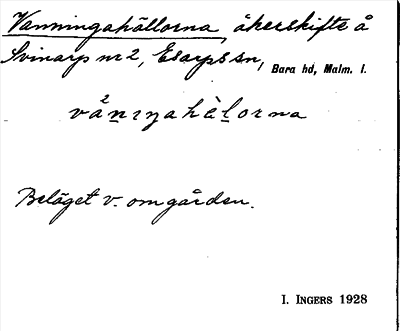 Vanningahällorna, åkerskifte å
Svinarp nr 2, Esarps sn, Bara hd, Malm. l.
Beläget v. om gården.
I. INGERS 1928